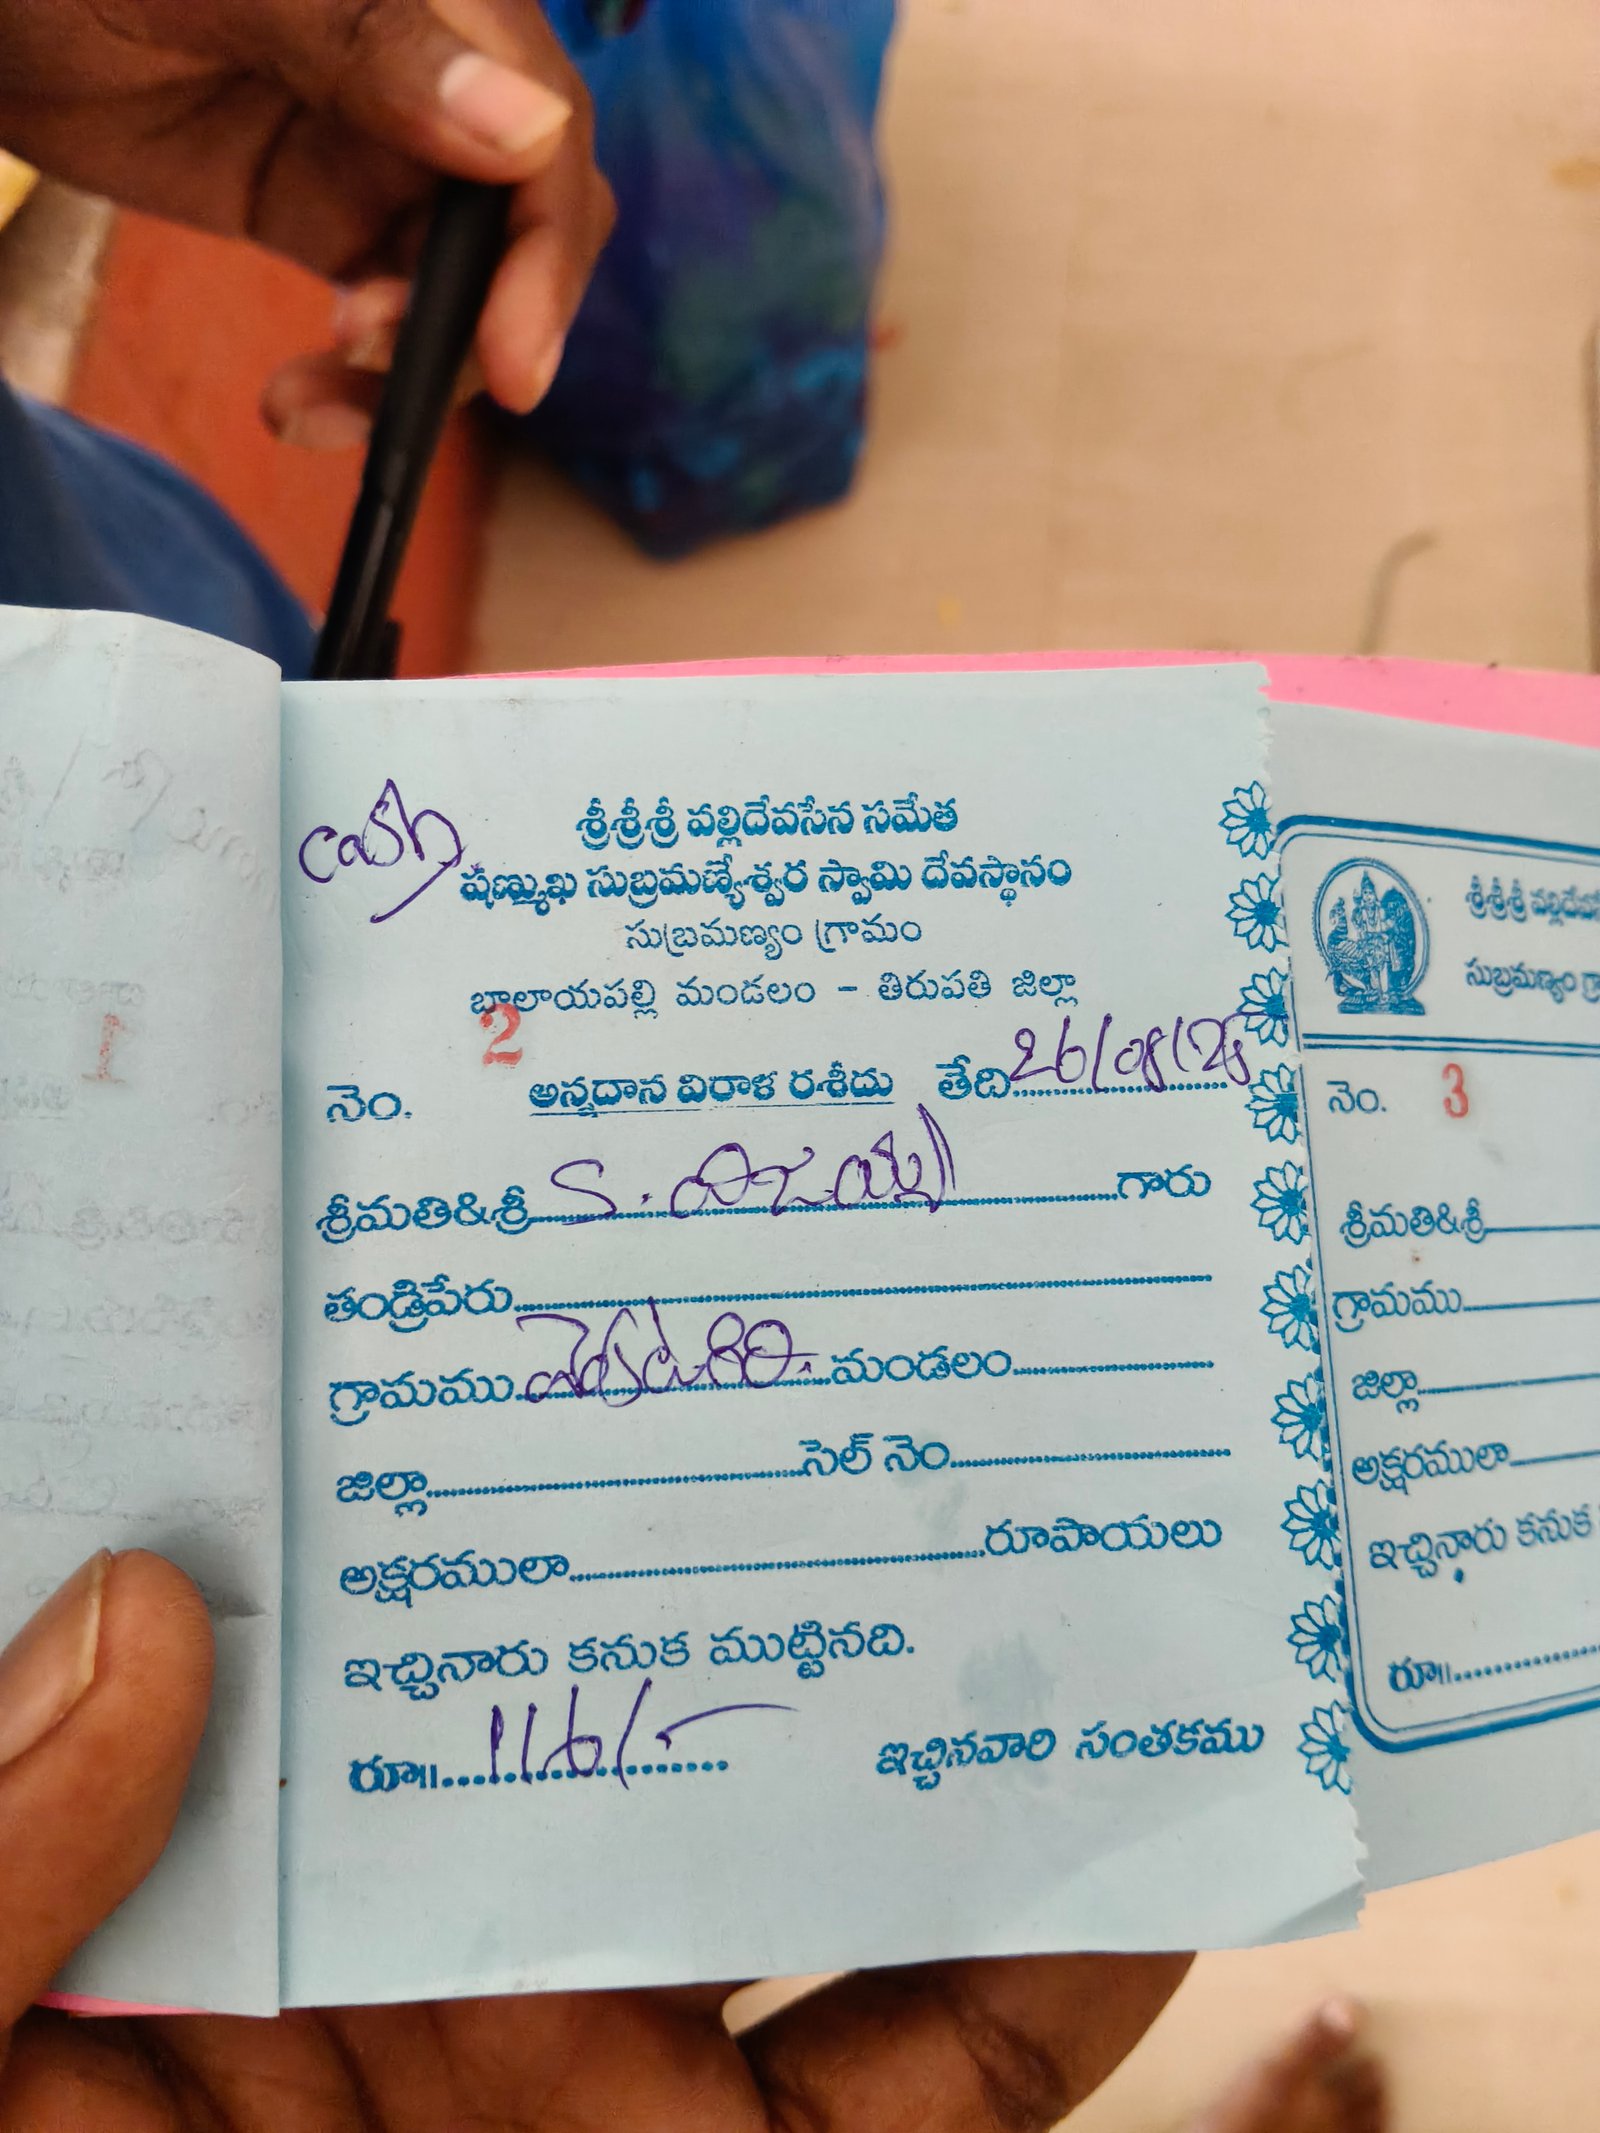 cash
శ్రీశ్రీశ్రీ వల్లిదేవసేన సమేత
షణ్ముఖ సుబ్రమణ్యేశ్వర స్వామి దేవస్థానం
సుబ్రమణ్యం గ్రామం
బాలాయపల్లి మండలం - తిరుపతి జిల్లా
నెం. 2 అన్నదాన విరాళ రశీదు తేది 26/08/25
శ్రీమతి&శ్రీ గారు
తండ్రిపేరు
గ్రామము మండలం
జిల్లా సెల్ నెం
అక్షరములా రూపాయలు
ఇచ్చినారు కనుక ముట్టినది.
రూ॥ 116/- ఇచ్చినవారి సంతకము
శ్రీశ్రీశ్రీ
సుబ్రమణ్యం
నెం. 3
శ్రీమతి&శ్రీ
గ్రామము
జిల్లా
అక్షరములా
ఇచ్చినారు కనుక
రూ॥
1